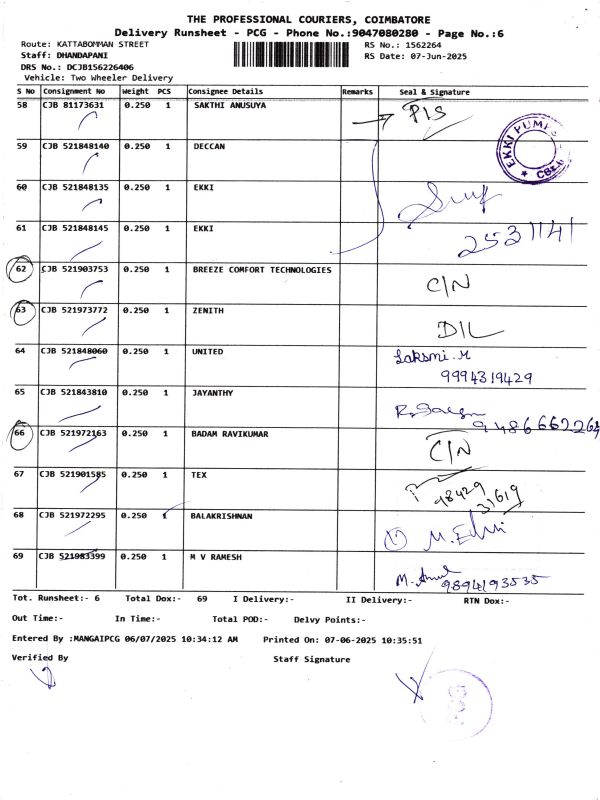 THE PROFESSIONAL COURIERS, COIMBATORE
Delivery Runsheet - PCG - Phone No.:9047080280 - Page No.:6
Route: KATTABOMMAN STREET RS No.: 1562264
Staff: DHANDAPANI RS Date: 07-Jun-2025
DRS No.: DCJB156226406
Vehicle: Two Wheeler Delivery
S No Consignment No Weight PCS Consignee Details Remarks Seal & Signature
58 CJB 81173631 0.250 1 SAKTHI ANUSUYA P/S
EKKI PUMPS
59 CJB 521848140 0.250 1 DECCAN
60 CJB 521848135 0.250 1 EKKI
61 CJB 521848145 0.250 1 EKKI 2531141
62 CJB 521903753 0.250 1 BREEZE COMFORT TECHNOLOGIES C/N
63 CJB 521973772 0.250 1 ZENITH D/L
64 CJB 521848060 0.250 1 UNITED Laksmi.M
9994319429
65 CJB 521843810 0.250 1 JAYANTHY
66 CJB 521972163 0.250 1 BADAM RAVIKUMAR C/N
67 CJB 521901585 0.250 1 TEX 98429
31619
68 CJB 521972295 0.250 1 BALAKRISHNAN
69 CJB 521983399 0.250 1 M V RAMESH 9894193535
Tot. Runsheet:- 6 Total Dox:- 69 I Delivery:- II Delivery:- RTN Dox:-
Out Time:- In Time:- Total POD:- Delvy Points:-
Entered By :MANGAIPCG 06/07/2025 10:34:12 AM Printed On: 07-06-2025 10:35:51
Verified By Staff Signature